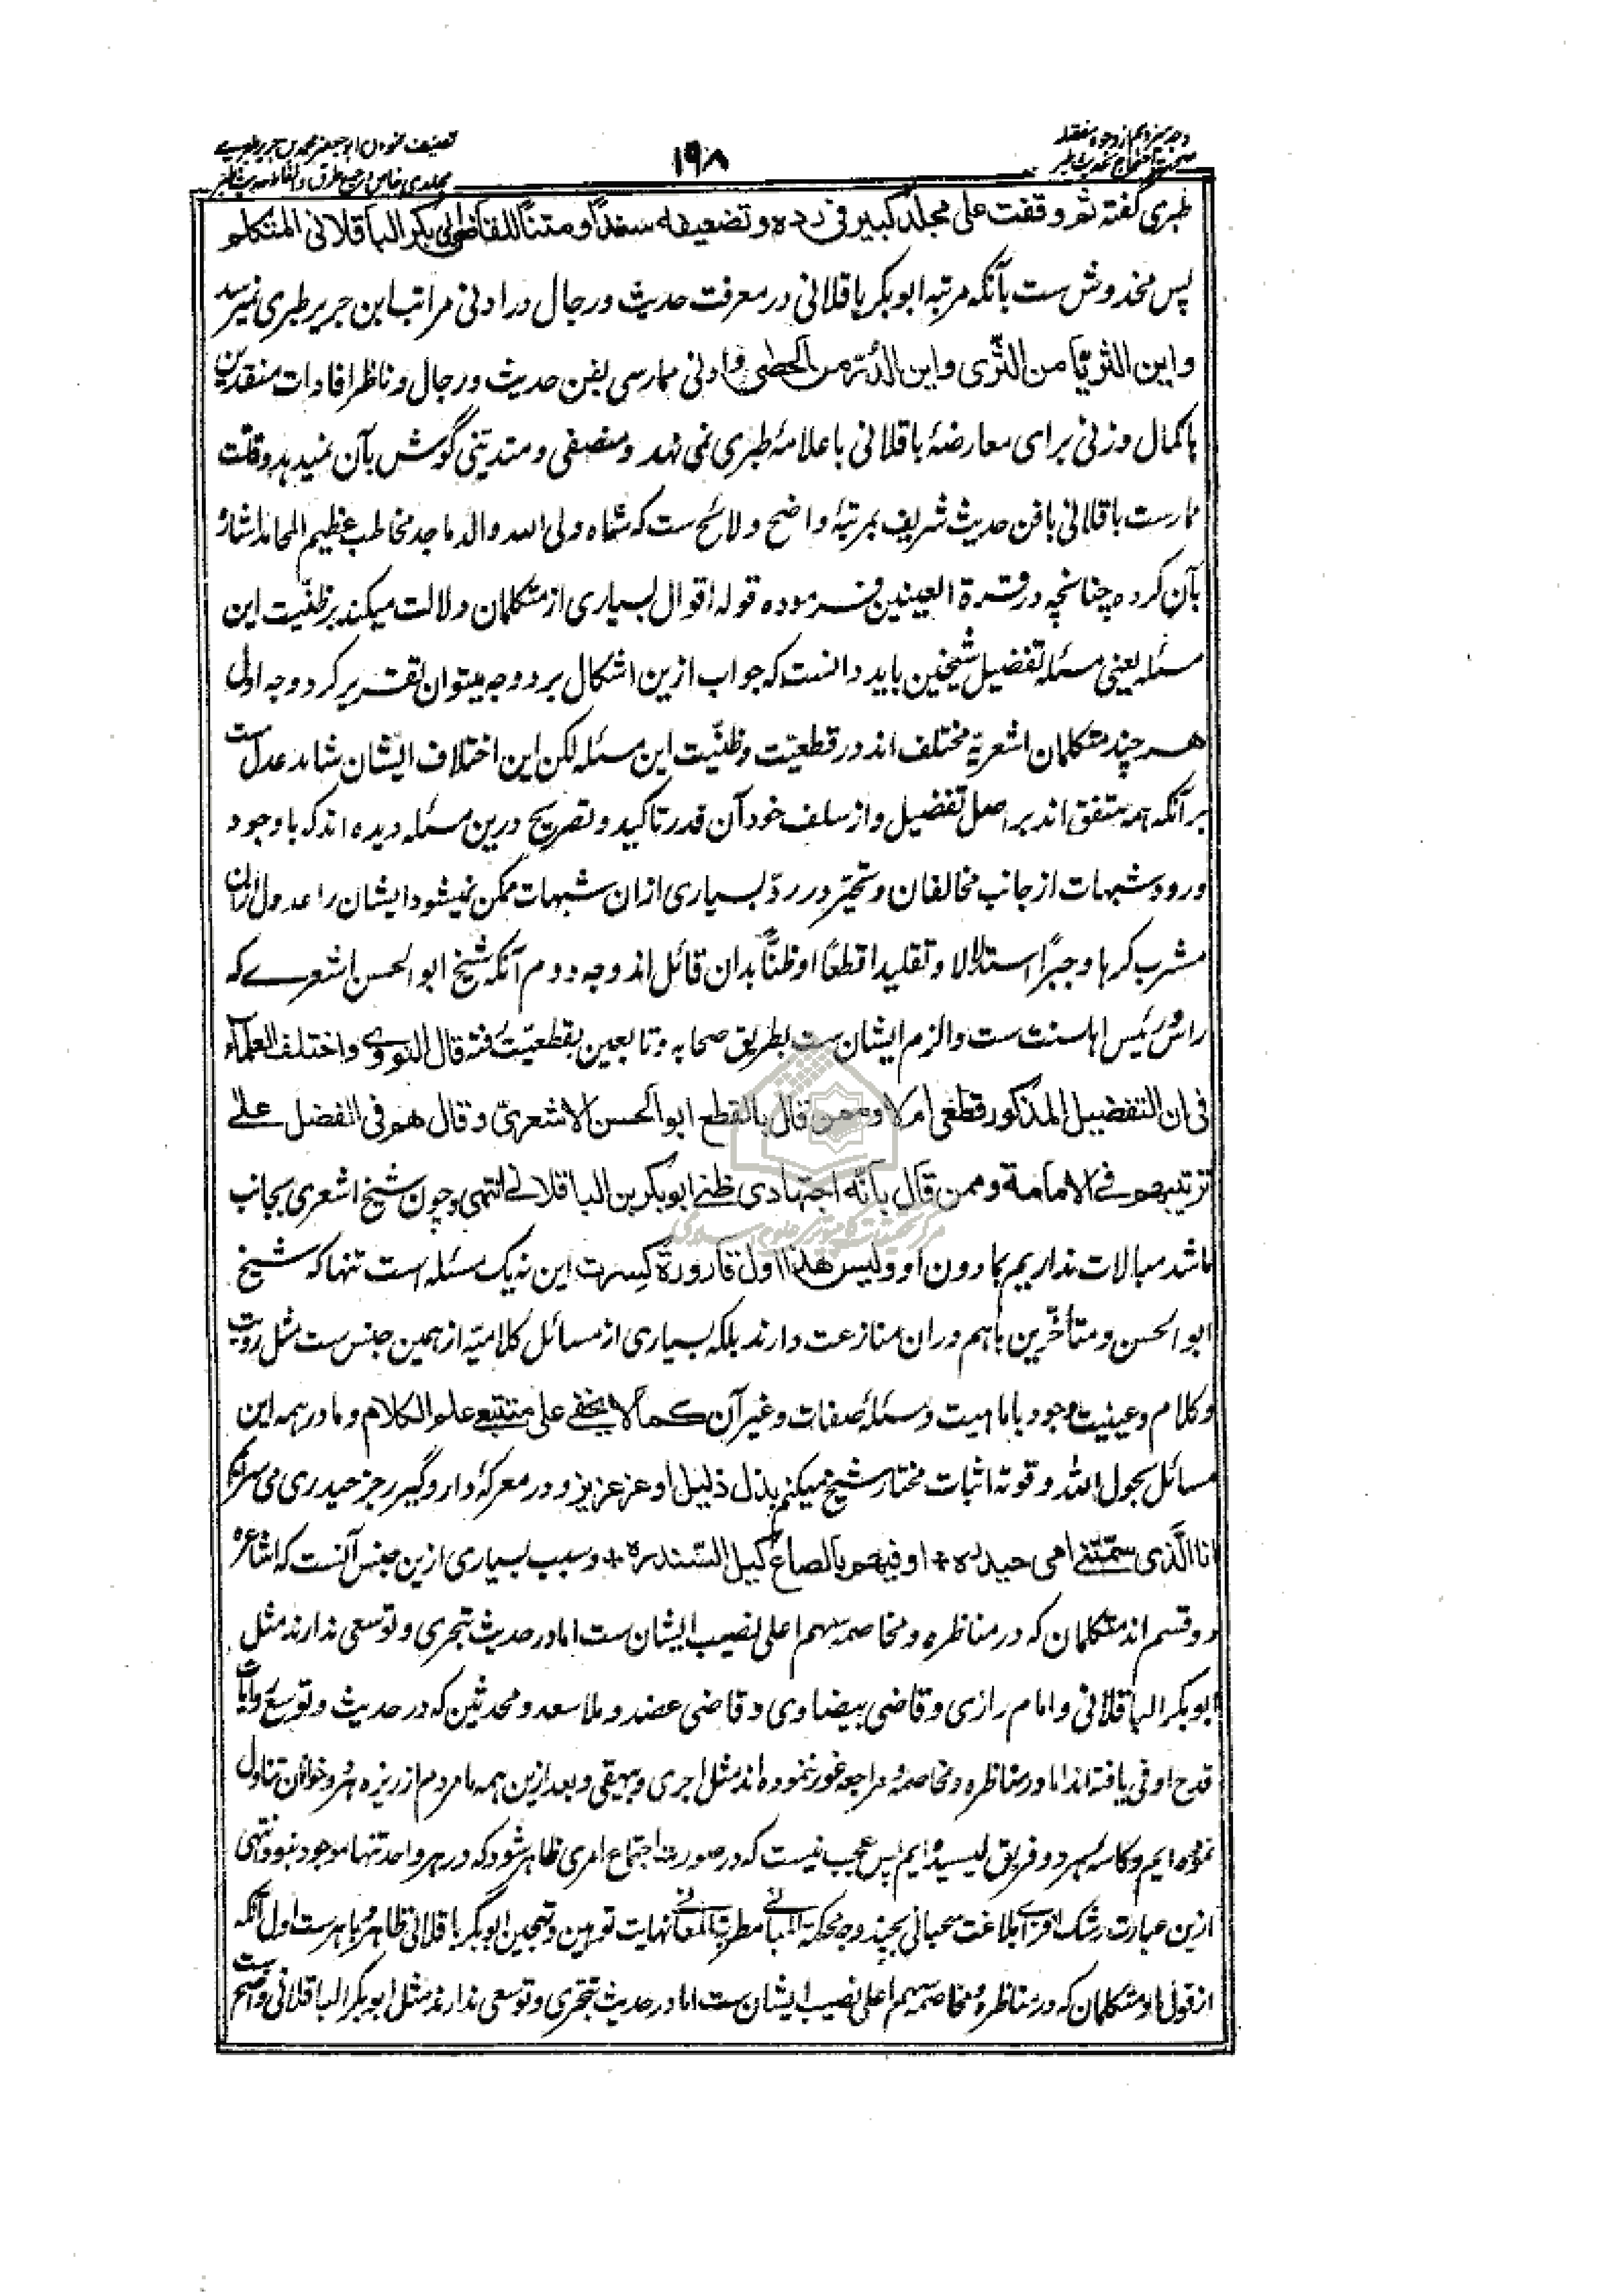 وجه سیزدهم از وجوه مفصله
صحت احتجاج بحدیث طیر
۱۹۸
تصنیف نمودن ابو جعفر محمد بن جریر طبری
مجلدی خاص در جمع طرق و الفاظ حدیث طیر
طبری گفته ثم وقفت على مجلد كبير فى رده و تضعيفه سندًا و متنًا للقاضى ابى بكر الباقلانى المتكلم
پس مخدوش ست بآنکه مرتبه ابو بکر باقلانی در معرفت حدیث و رجال در ادنی مراتب ابن جریر طبری نمیرسد
و این الثریا من الثّری و این الدرّ من الحصی و ادنی ممارسی بفن حدیث و رجال و ناظر افادات منقدین
باکمال وزنی برای معارضهٔ باقلانی با علامهٔ طبری نمی نهد و منصفی و متدیّنی گوش بآن نمیدهد و قلت
ممارست باقلانی با فن حدیث شریف بمرتبهٔ واضح و لائح ست که شاه ولی الله والد ماجد مخاطب عظیم المحامد اشاره
بآن کرده چنانچه در قرة العینین فرموده قوله اقوال بسیاری از متکلمان دلالت میکند بر ظنّیت این
مسئله یعنی مسئله تفضیل شیخین باید دانست که جواب ازین اشکال بر دو وجه میتوان تقریر کرد وجه اول
هر چند متکلمان اشعریّه مختلف اند در قطعیّت و ظنّیت این مسئله لکن این اختلاف ایشان شاهد عدل ست
بر آنکه همه متفق اند بر اصل تفضیل و از سلف خود آن قدر تاکید و تصریح درین مسئله دیده اند که با وجود
ورود شبهات از جانب مخالفان و تحیّر در ردّ بسیاری ازان شبهات ممکن نمیشود ایشان را عدول ازان
مشرب کرها و جبرًا استدلالا و تقلیدا قطعًا او ظنًّا بدان قائل اند وجه دوم آنکه شیخ ابو الحسن اشعرے که
راس و رئیس اهلسنت ست و الزم ایشان ست بطریق صحابه و تابعین بقطعیّت رفته قال النووي و اختلف العلماء
فى ان التفضيل المذكور قطعى ام لا و ممن قال بالقطع ابو الحسن الاشعرىّ و قال هم فى الفضل على
ترتيبهم فى الامامة و ممن قال بانّه اجتهادى ظنى ابو بكر بن الباقلانى انتهى و چون شیخ اشعری بجانب
باشد مبالات نداریم بما دون او و ليس هذا اول قارورة كسرت این نه یک مسئله است تنها که شیخ
ابو الحسن و متأخّرین باهم دران منازعت دارند بلکه بسیاری از مسائل کلامیّه از همین جنس ست مثل رویت
و کلام و عینیت وجود با ماهیت و مسئلهٔ صفات و غیر آن كما لا يخفى على متتبع علم الكلام و ما در همه این
مسائل بحول الله و قوته اثبات مختار شیخ میکنم بذل ذلیل او عز عزیز و در معرکهٔ دار و گیر رجز حیدری می سرائیم
انا الّذى سمّتنى امى حيدره + اوفيهم بالصاع كيل السّندره + و سبب بسیاری ازین جنس آنست که اشاعره
دو قسم اند متکلمان که در مناظره و مخاصمه سهم اعلی نصیب ایشان ست اما در حدیث تبحری و توسعی ندارند مثل
ابو بکر الباقلانی و امام رازی و قاضی بیضاوی و قاضی عضد و ملا سعد و محدثین که در حدیث و توسع روایات
قدح اوفی یافته اند اما در مناظره و مخاصمه و مراجعه غور ننموده اند مثل اجری و بیهقی و بعد ازین همه ما مردم از ریزه هر دو خوان تناول
نموده ایم و کاسه لیس هر دو فریق لیسیده ایم پس عجب نیست که در صورت اجتماع امری ظاهر شود که در هر واحد تنها موجود نبود انتهی
ازین عبارت رشک افزای بلاغت سحبانی بچند وجه محکمة المبانی مطربة المعانی نهایت توهین و تهجین ابو بکر باقلانی ظاهر و باهر ست اول آنکه
از قول او متکلمان که در مناظره و مخاصمه سهم اعلی نصیب ایشان ست اما در حدیث تبحری و توسعی ندارند مثل ابو بکر الباقلانی واضح ست